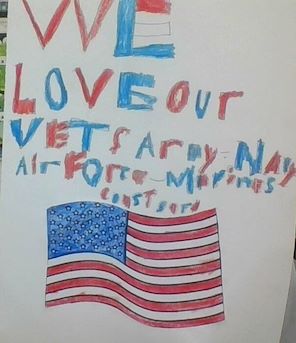 WE
LOVE our
VETs Army-Navy
Air Force-Marines
Coast Gard